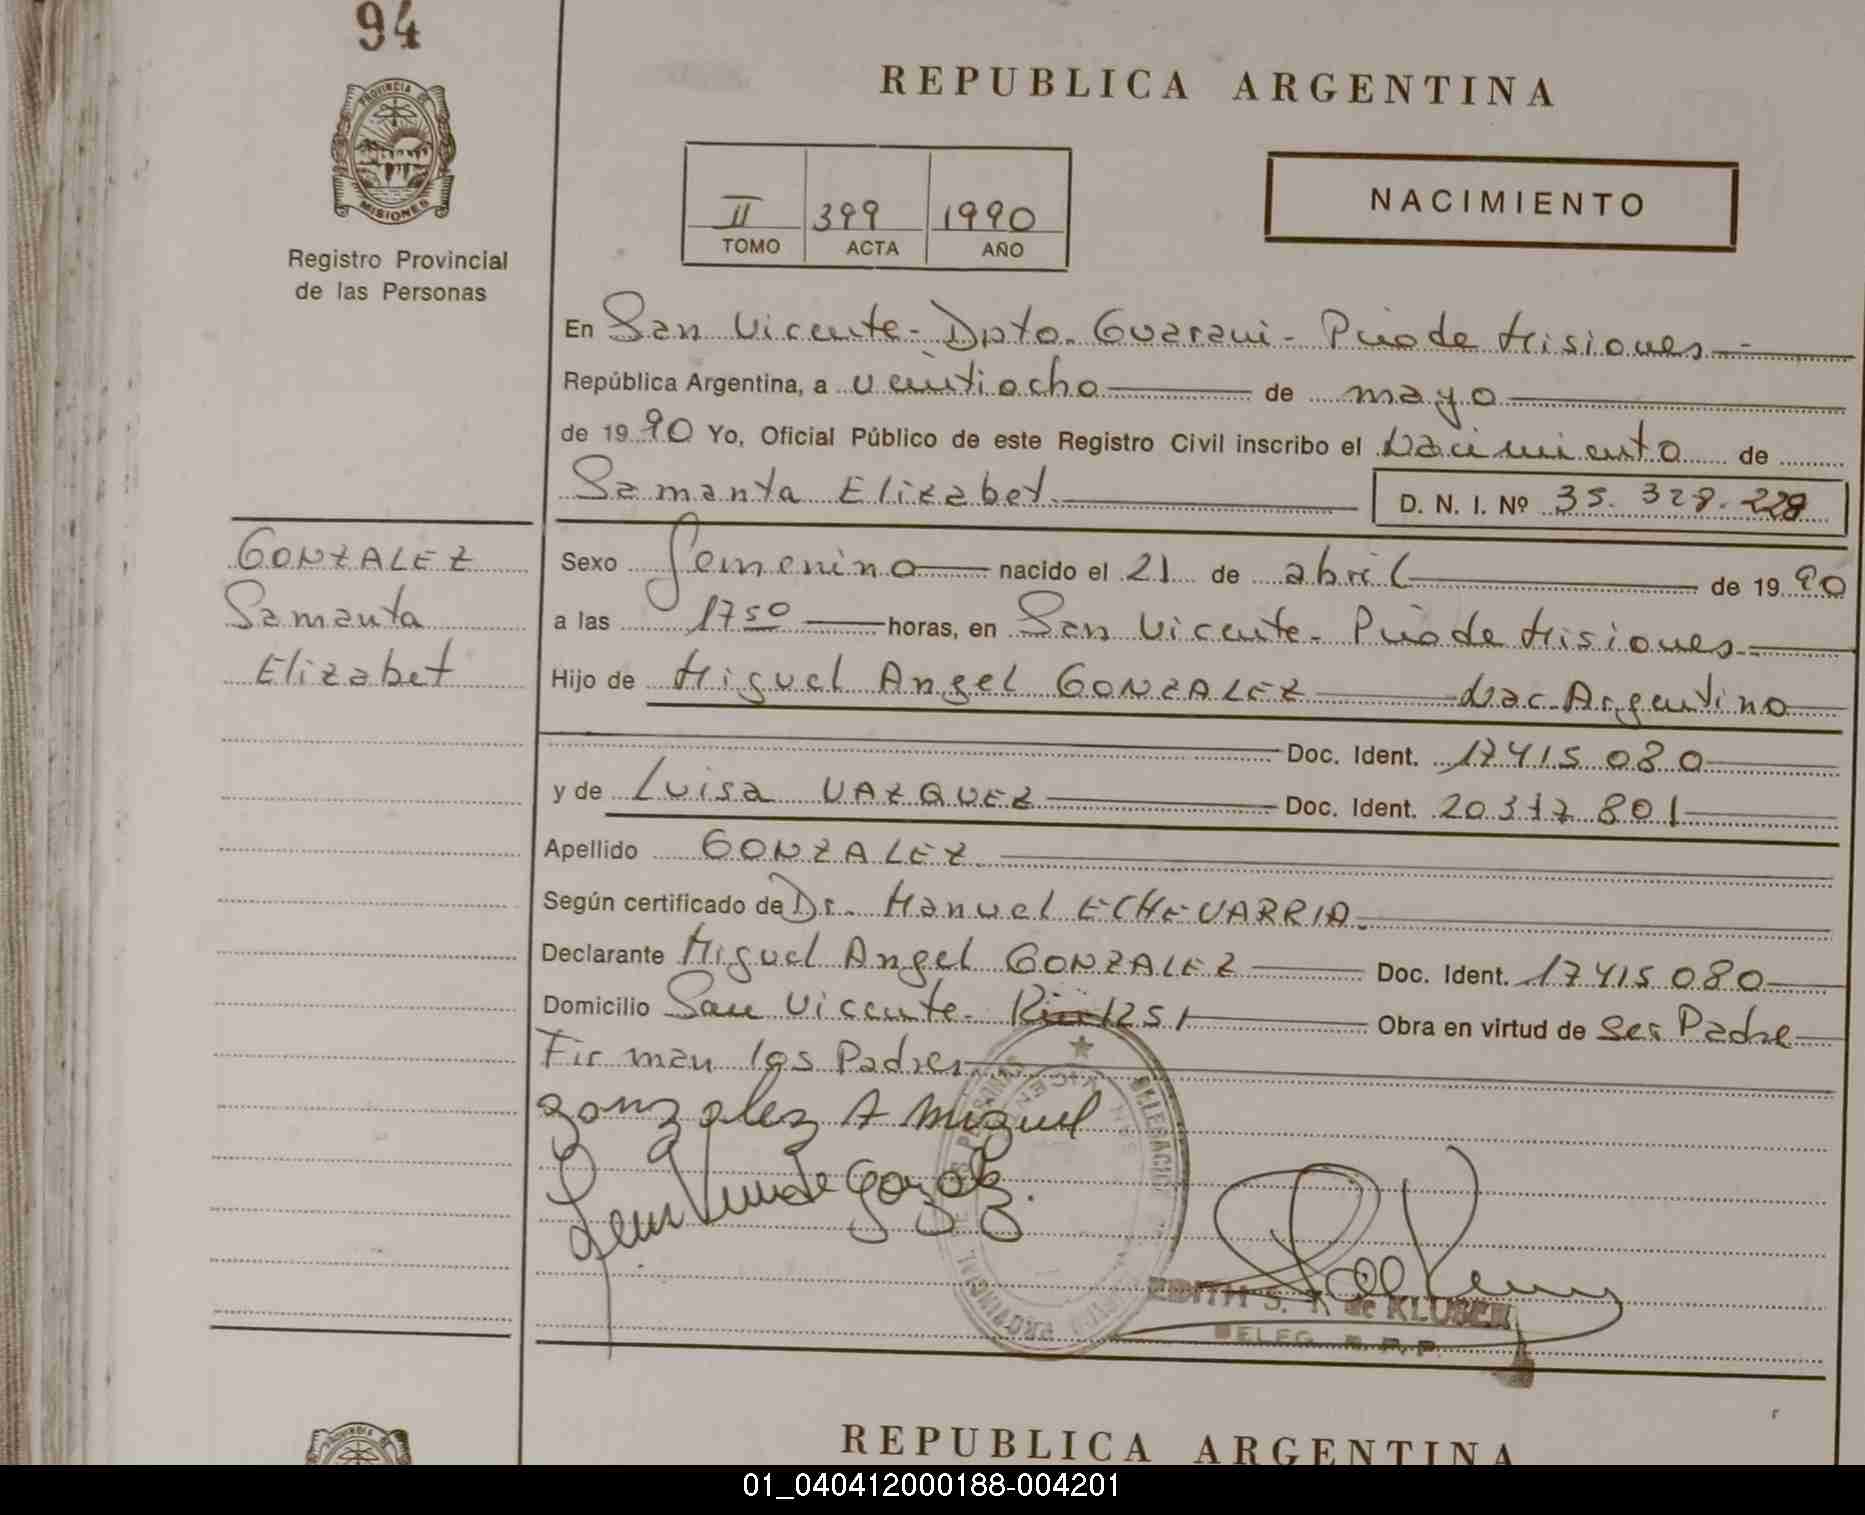 94
PROVINCIA DE
MISIONES
Registro Provincial
de las Personas
REPUBLICA ARGENTINA
II 399 1990
TOMO ACTA AÑO
NACIMIENTO
En San Vicente - Dpto. Guarani - Pcia de Misiones
República Argentina, a veintiocho de mayo
de 1990 Yo, Oficial Público de este Registro Civil inscribo el Nacimiento de
Samanta Elizabet
D. N. I. Nº 35.328.228
GONZALEZ
Samanta
Elizabet
Sexo Femenino nacido el 21 de abril de 1990
a las 17 50 horas, en San Vicente - Pcia de Misiones
Hijo de Miguel Angel GONZALEZ Nac. Argentino
Doc. Ident. 17415080
y de Luisa VAZQUEZ Doc. Ident. 20.317.801
Apellido GONZALEZ
Según certificado de Dr. Manuel ECHEVARRIA
Declarante Miguel Angel GONZALEZ Doc. Ident. 17415080
Domicilio San Vicente - 1251 Obra en virtud de Ser Padre
Firman los Padres
gonzalez A Miguel
EDITH S. de KLUBER
DELEG. R. P. P.
REPUBLICA ARGENTINA
01_040412000188-004201